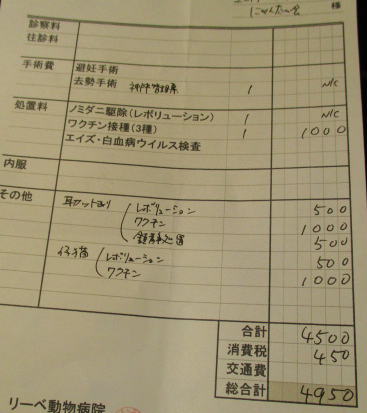 にゃんだーの会 様
診察料
往診料
手術費 避妊手術
去勢手術 1 N/C
処置料 ノミダニ駆除(レボリューション) 1 N/C
ワクチン接種(3種) 1 1000
エイズ・白血病ウイルス検査
内服
その他 耳カットあり レボリューション 500
ワクチン 1000
処置 500
仔猫 レボリューション 500
ワクチン 1000
合計 4500
消費税 450
交通費
総合計 4950
リーベ動物病院